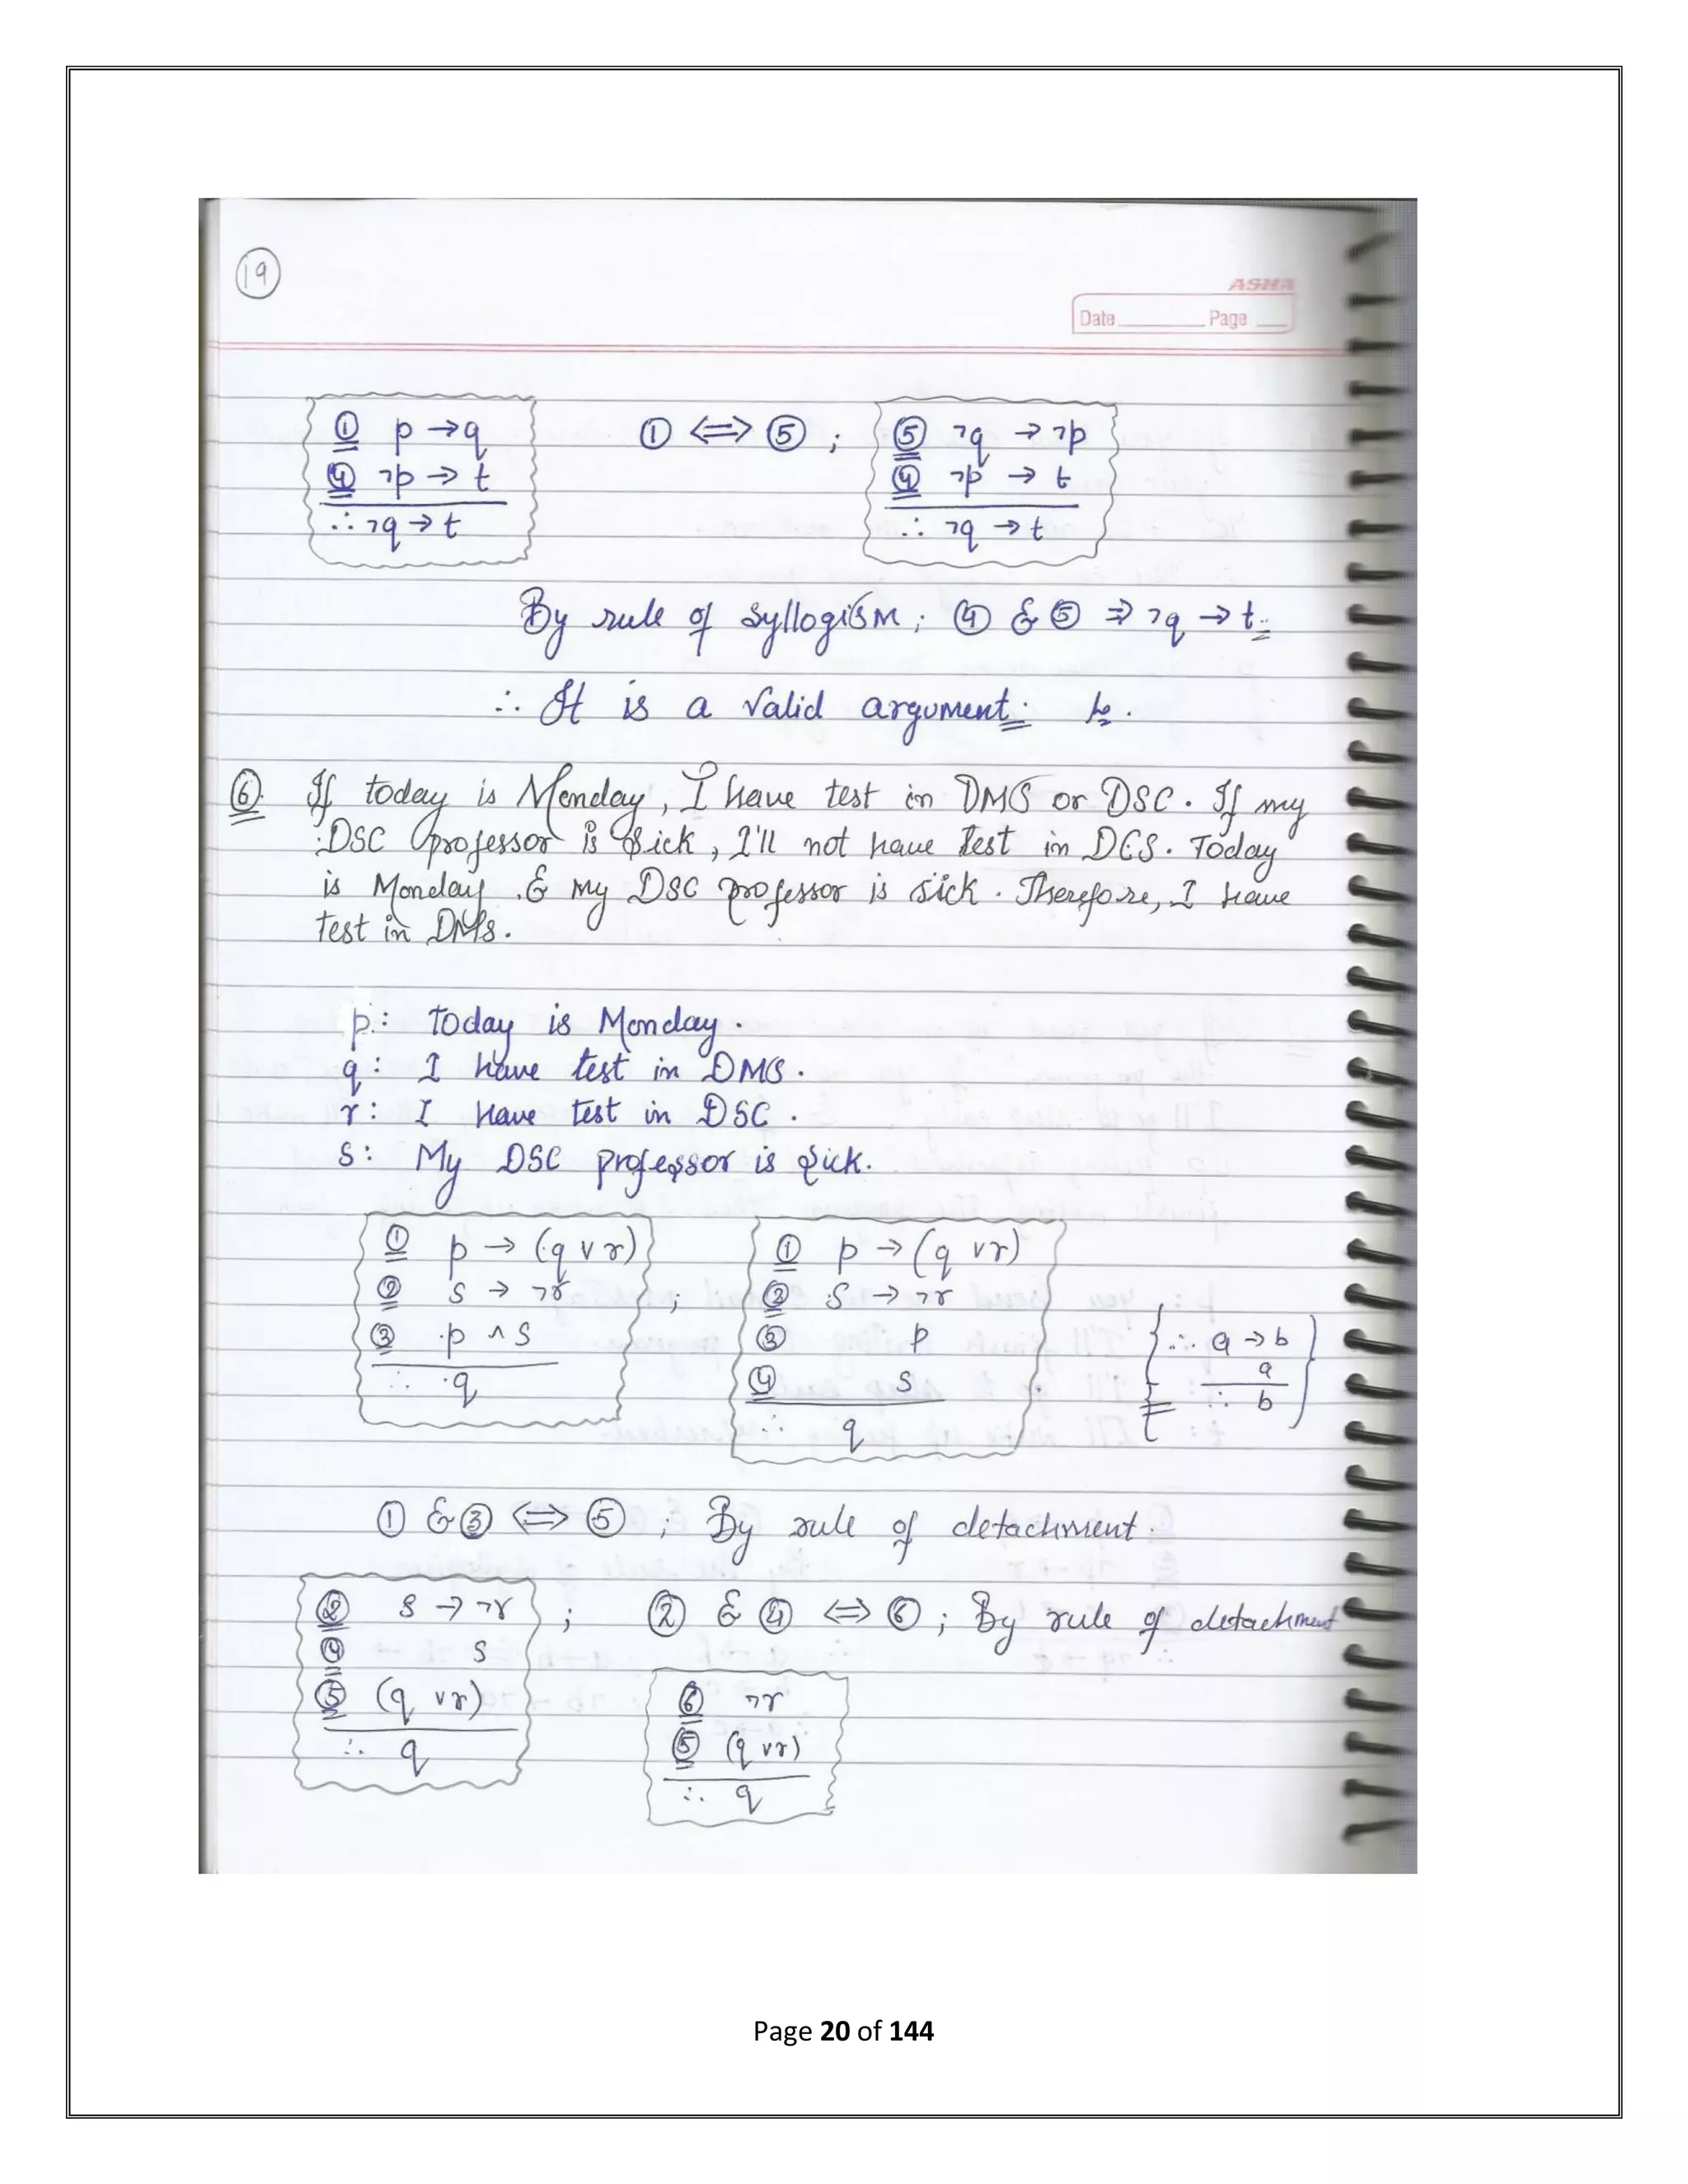 19
ASHA
Date Page
① p → q ① ⟺ ⑤ ; ⑤ ¬q → ¬p
④ ¬p → t ④ ¬p → t
∴ ¬q → t ∴ ¬q → t
By rule of syllogism; ④ & ⑤ ⇒ ¬q → t.
∴ It is a valid argument.
⑥. If today is Monday, I have test in DMS or DSC. If my
DSC professor is sick, I'll not have test in DCS. Today
is Monday & my DSC professor is sick. Therefore, I have
test in DMS.
p: Today is Monday.
q: I have test in DMS.
r: I have test in DSC.
s: My DSC professor is sick.
① p → (q ∨ r) ① p → (q ∨ r)
② s → ¬r ; ② s → ¬r
③ p ∧ s ③ p ∴ a → b
∴ q ④ s a
∴ q ∴ b
① & ③ ⟺ ⑤ ; By rule of detachment.
② s → ¬r ; ② & ④ ⟺ ⑥ ; By rule of detachment
④ s
⑤ (q ∨ r) ⑥ ¬r
∴ q ⑤ (q ∨ r)
∴ q
Page 20 of 144